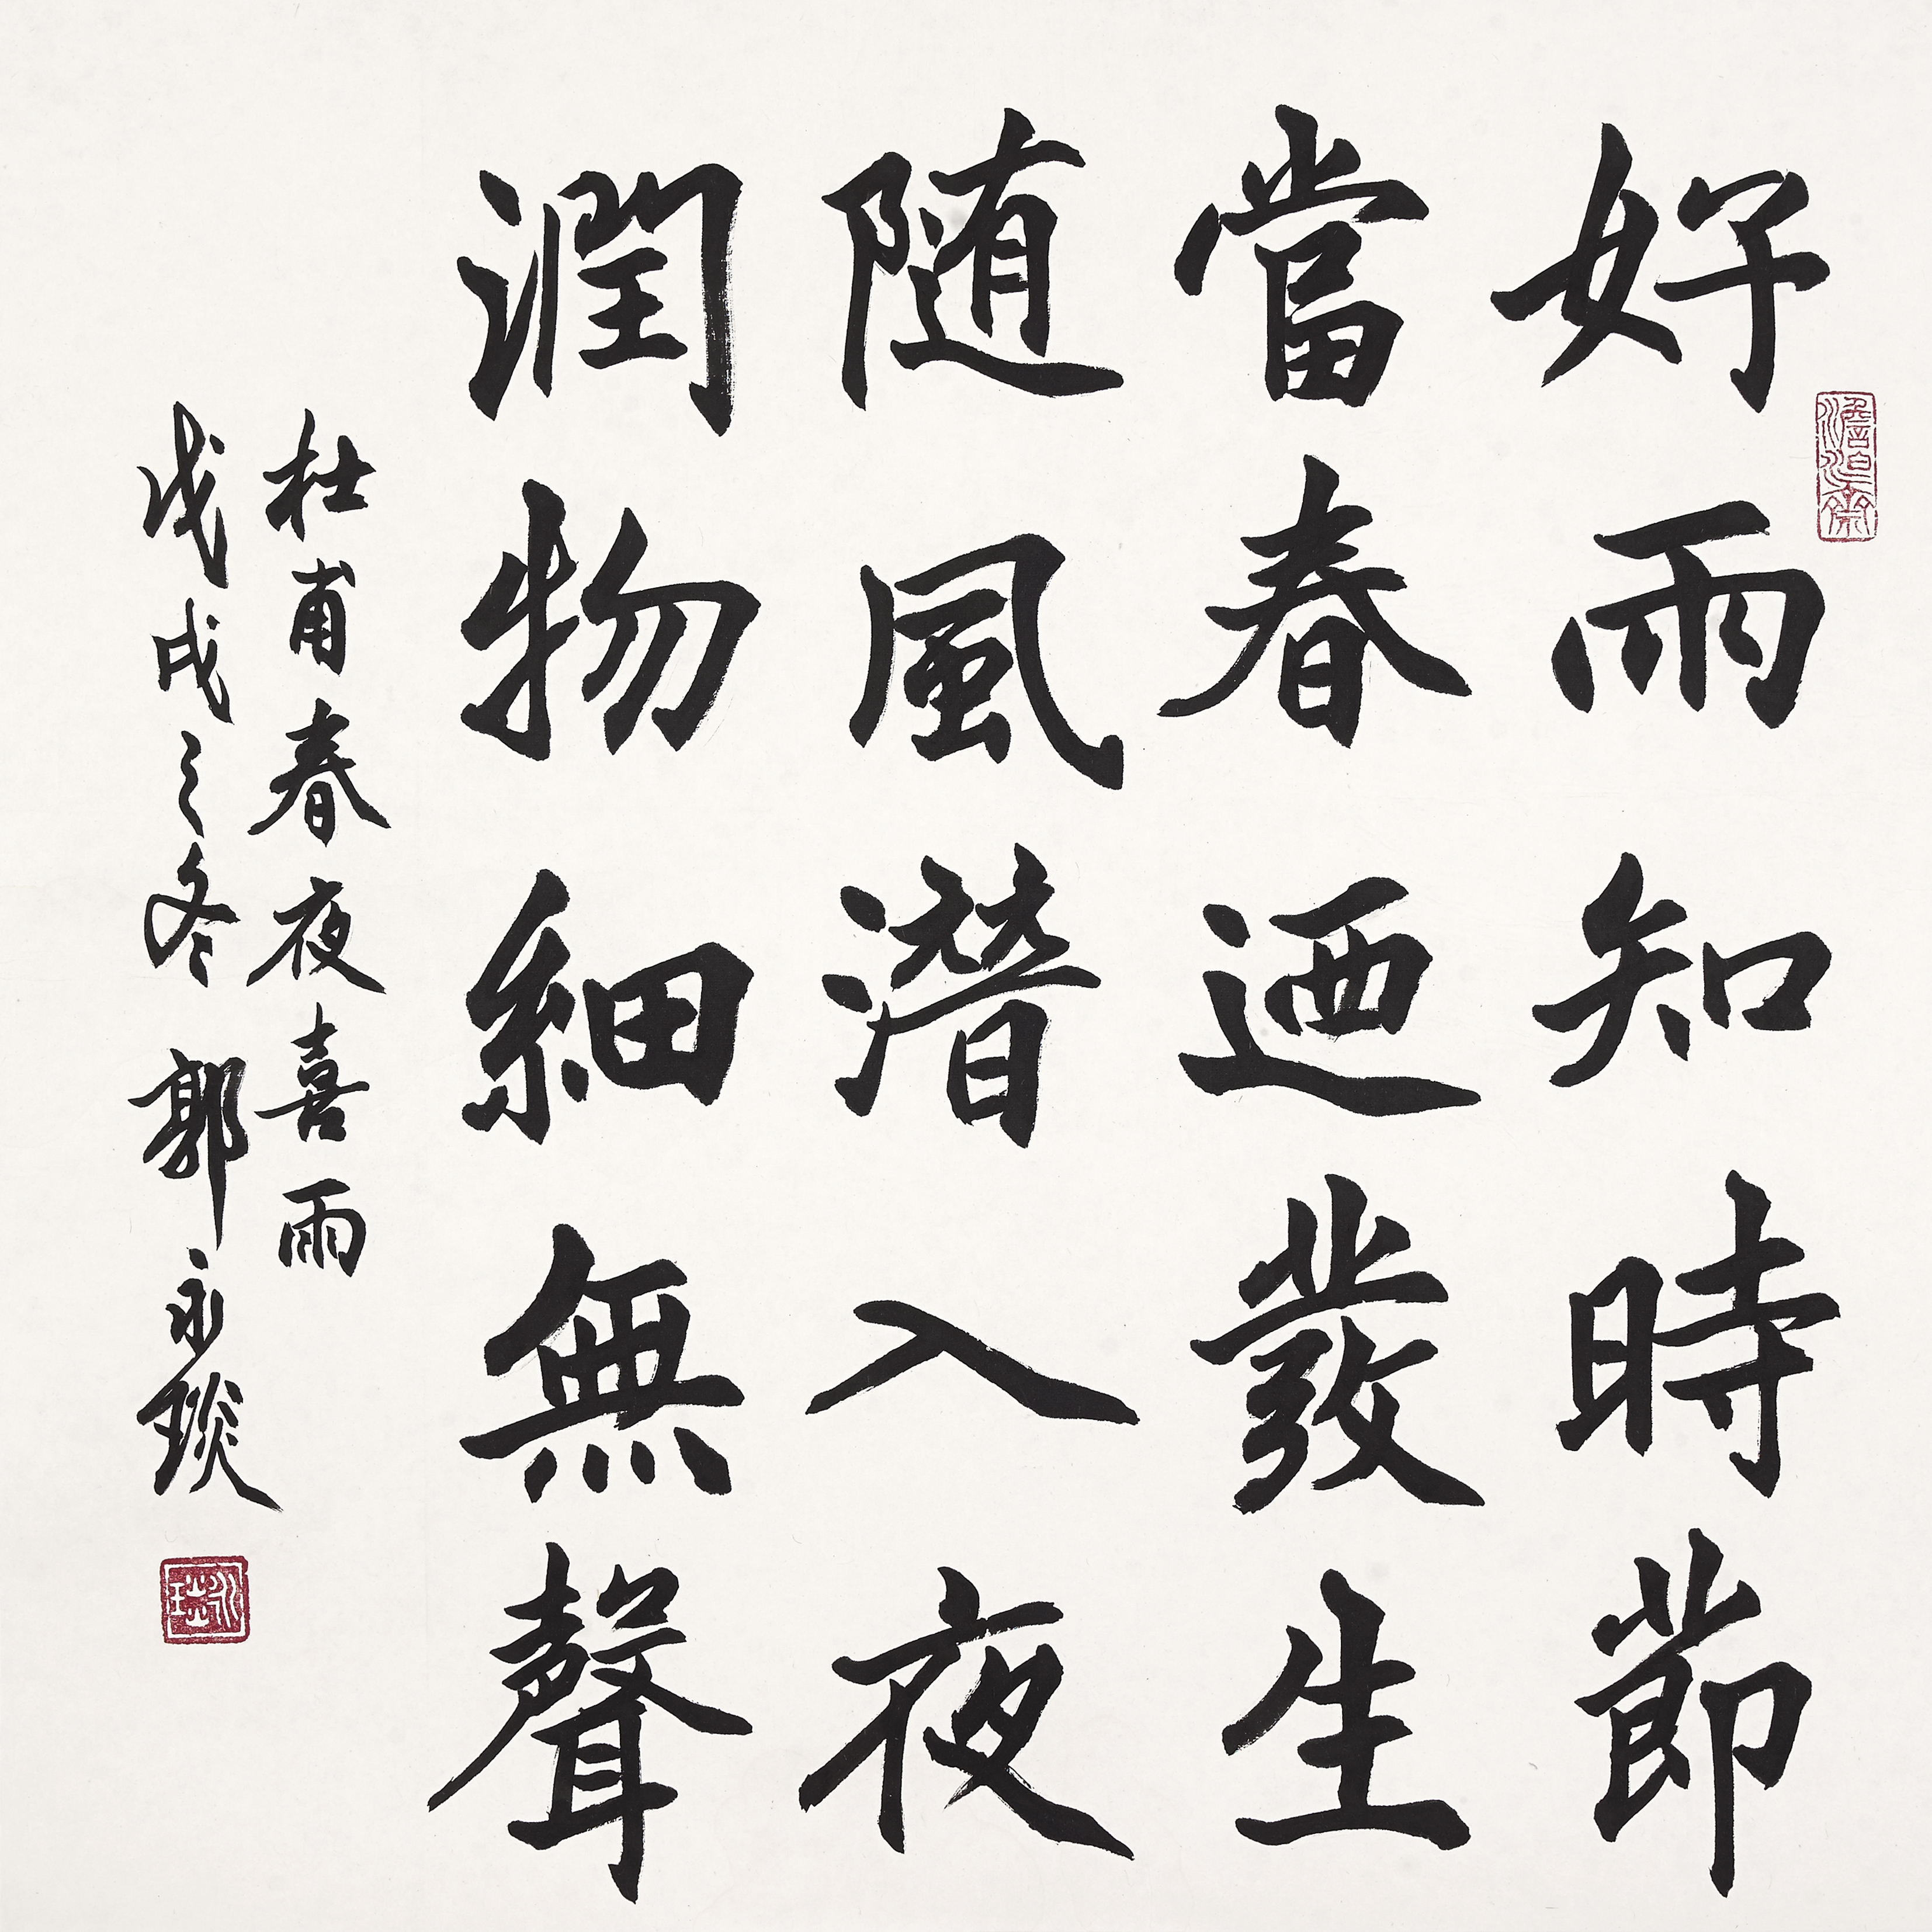 好雨知時節
當春迺發生
随風潛入夜
潤物細無聲
杜甫春夜喜雨
戊戌之冬 郭永琰
澹泊齋
永琰